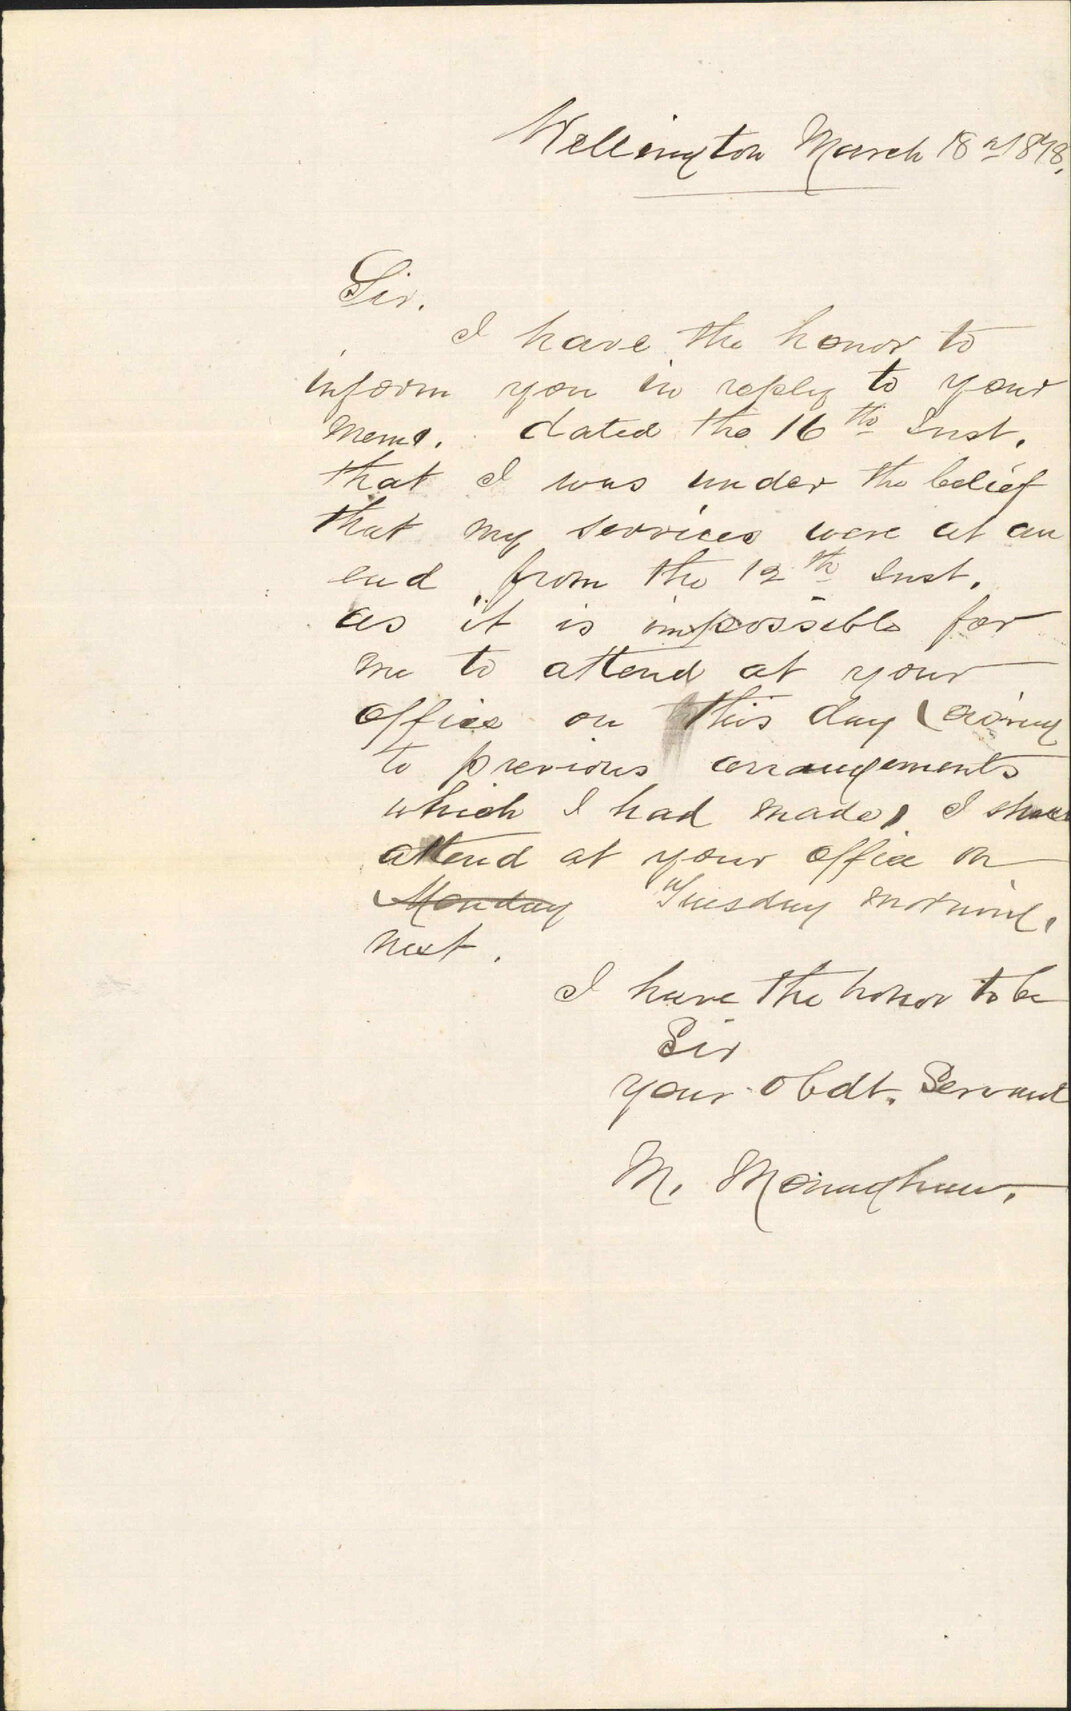 Wellington March 18th 1878,
Sir.
I have the honor to
inform you in reply to your
memo. dated the 16th Inst.
that I was under the belief
that my services were at an
end from the 12th Inst.
as it is impossible for
me to attend at your
office on this day (owing
to previous arrangements
which I had made) I shall
attend at your office on
Monday Tuesday morning,
next.
I have the honor to be
Sir
your obdt. Servant
M. Monaghan.